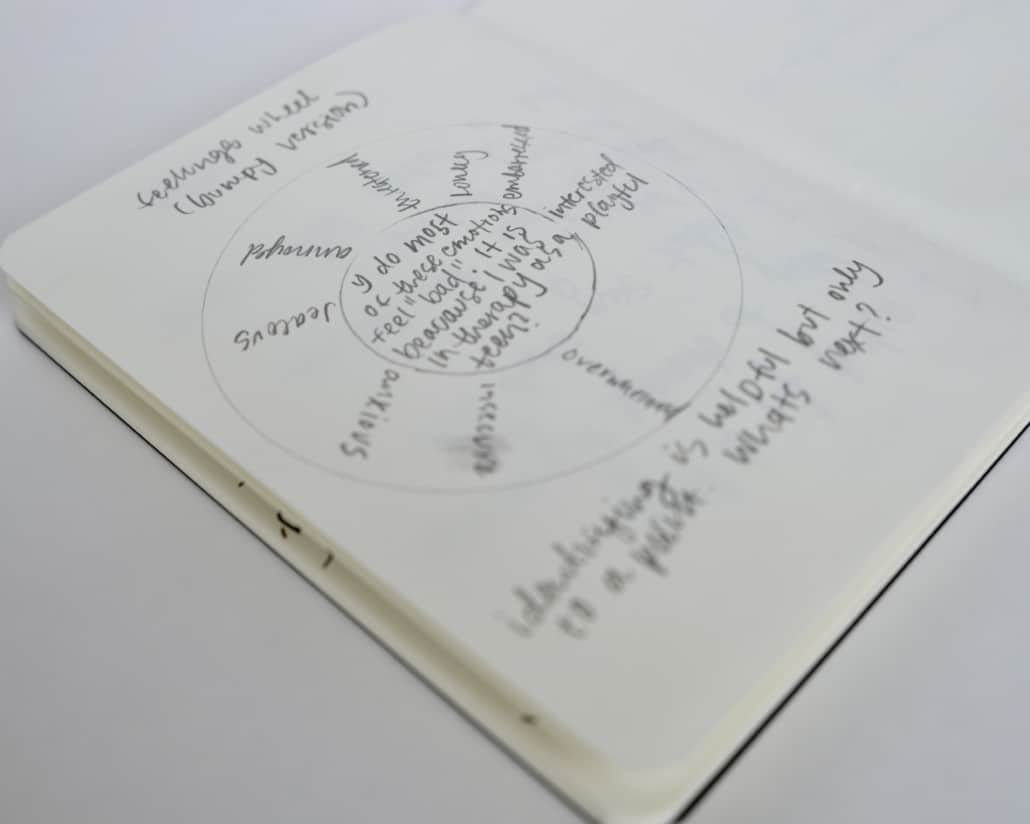 feelings wheel
(bumpy version)
threatened
lonely
embarrassed
interested
playful
annoyed
Jealous
anxious
insecure
overwhelmed
y do most
of these emotions
feel "bad". It is
beacause I was
in therapy as a
teen?
is helpful but only
to a point. whats next?